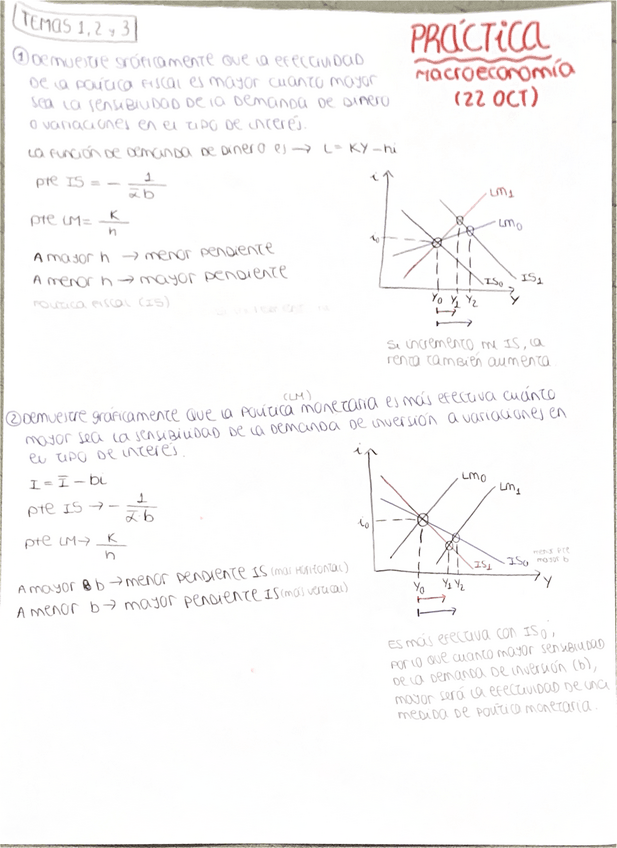 TEMAS 1, 2 y 3
PRÁCTICA
Macroeconomía
(22 OCT)
① Demuestre gráficamente que la efectividad
de la política fiscal es mayor cuánto mayor
sea la sensibilidad de la demanda de dinero
a variaciones en el tipo de interés.
La función de demanda de dinero es → L = KY - hi
pte IS = - 1/ᾱb
pte LM = K/h
A mayor h → menor pendiente
A menor h → mayor pendiente
Política fiscal (IS)
i
LM₁
LM₀
i₀
IS₀
IS₁
Y₀ Y₁ Y₂ Y
Si incremento me IS, la
renta también aumenta
(LM)
② Demuestre gráficamente que la política monetaria es más efectiva cuánto
mayor sea la sensibilidad de la demanda de inversión a variaciones en
el tipo de interés.
I = Ī - bi
pte IS → - 1/ᾱb
pte LM → K/h
A mayor b → menor pendiente IS (más horizontal)
A menor b → mayor pendiente IS (más vertical)
i
LM₀
LM₁
i₀
IS₁
IS₀
menor pte
mayor b
Y₀ Y₁ Y₂ Y
Es más efectiva con IS₀,
por lo que cuanto mayor sensibilidad
de la demanda de inversión (b),
mayor será la efectividad de una
medida de política monetaria.